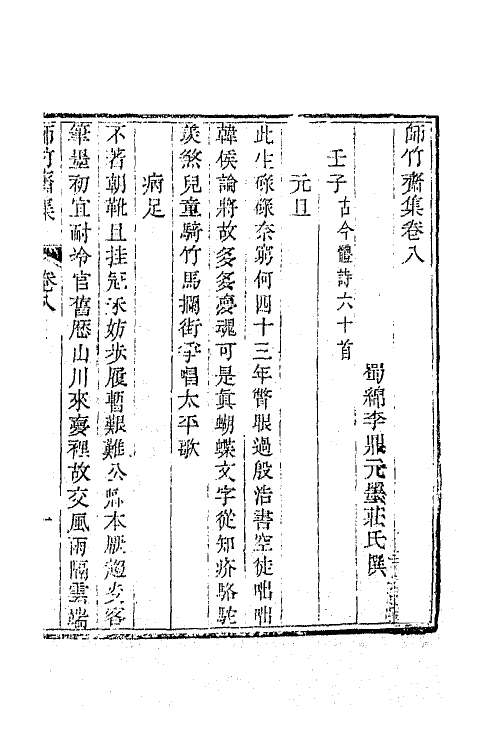 師竹齋集卷八
蜀綿李鼎元墨莊氏撰
壬子古今體詩六十首
元旦
此生碌碌奈窮何四十三年瞥眼過殷浩書空徒咄咄
韓侯論將故多多夢魂可是真蝴蝶文字從知疥駱駝
羨煞兒童騎竹馬攔街爭唱太平歌
病足
不著朝靴且挂冠不妨步履暫艱難公孫本厭趨炎客
筆墨初宜耐冷官舊歷山川來夢裡故交風雨隔雲端
師竹齋集
卷八
一